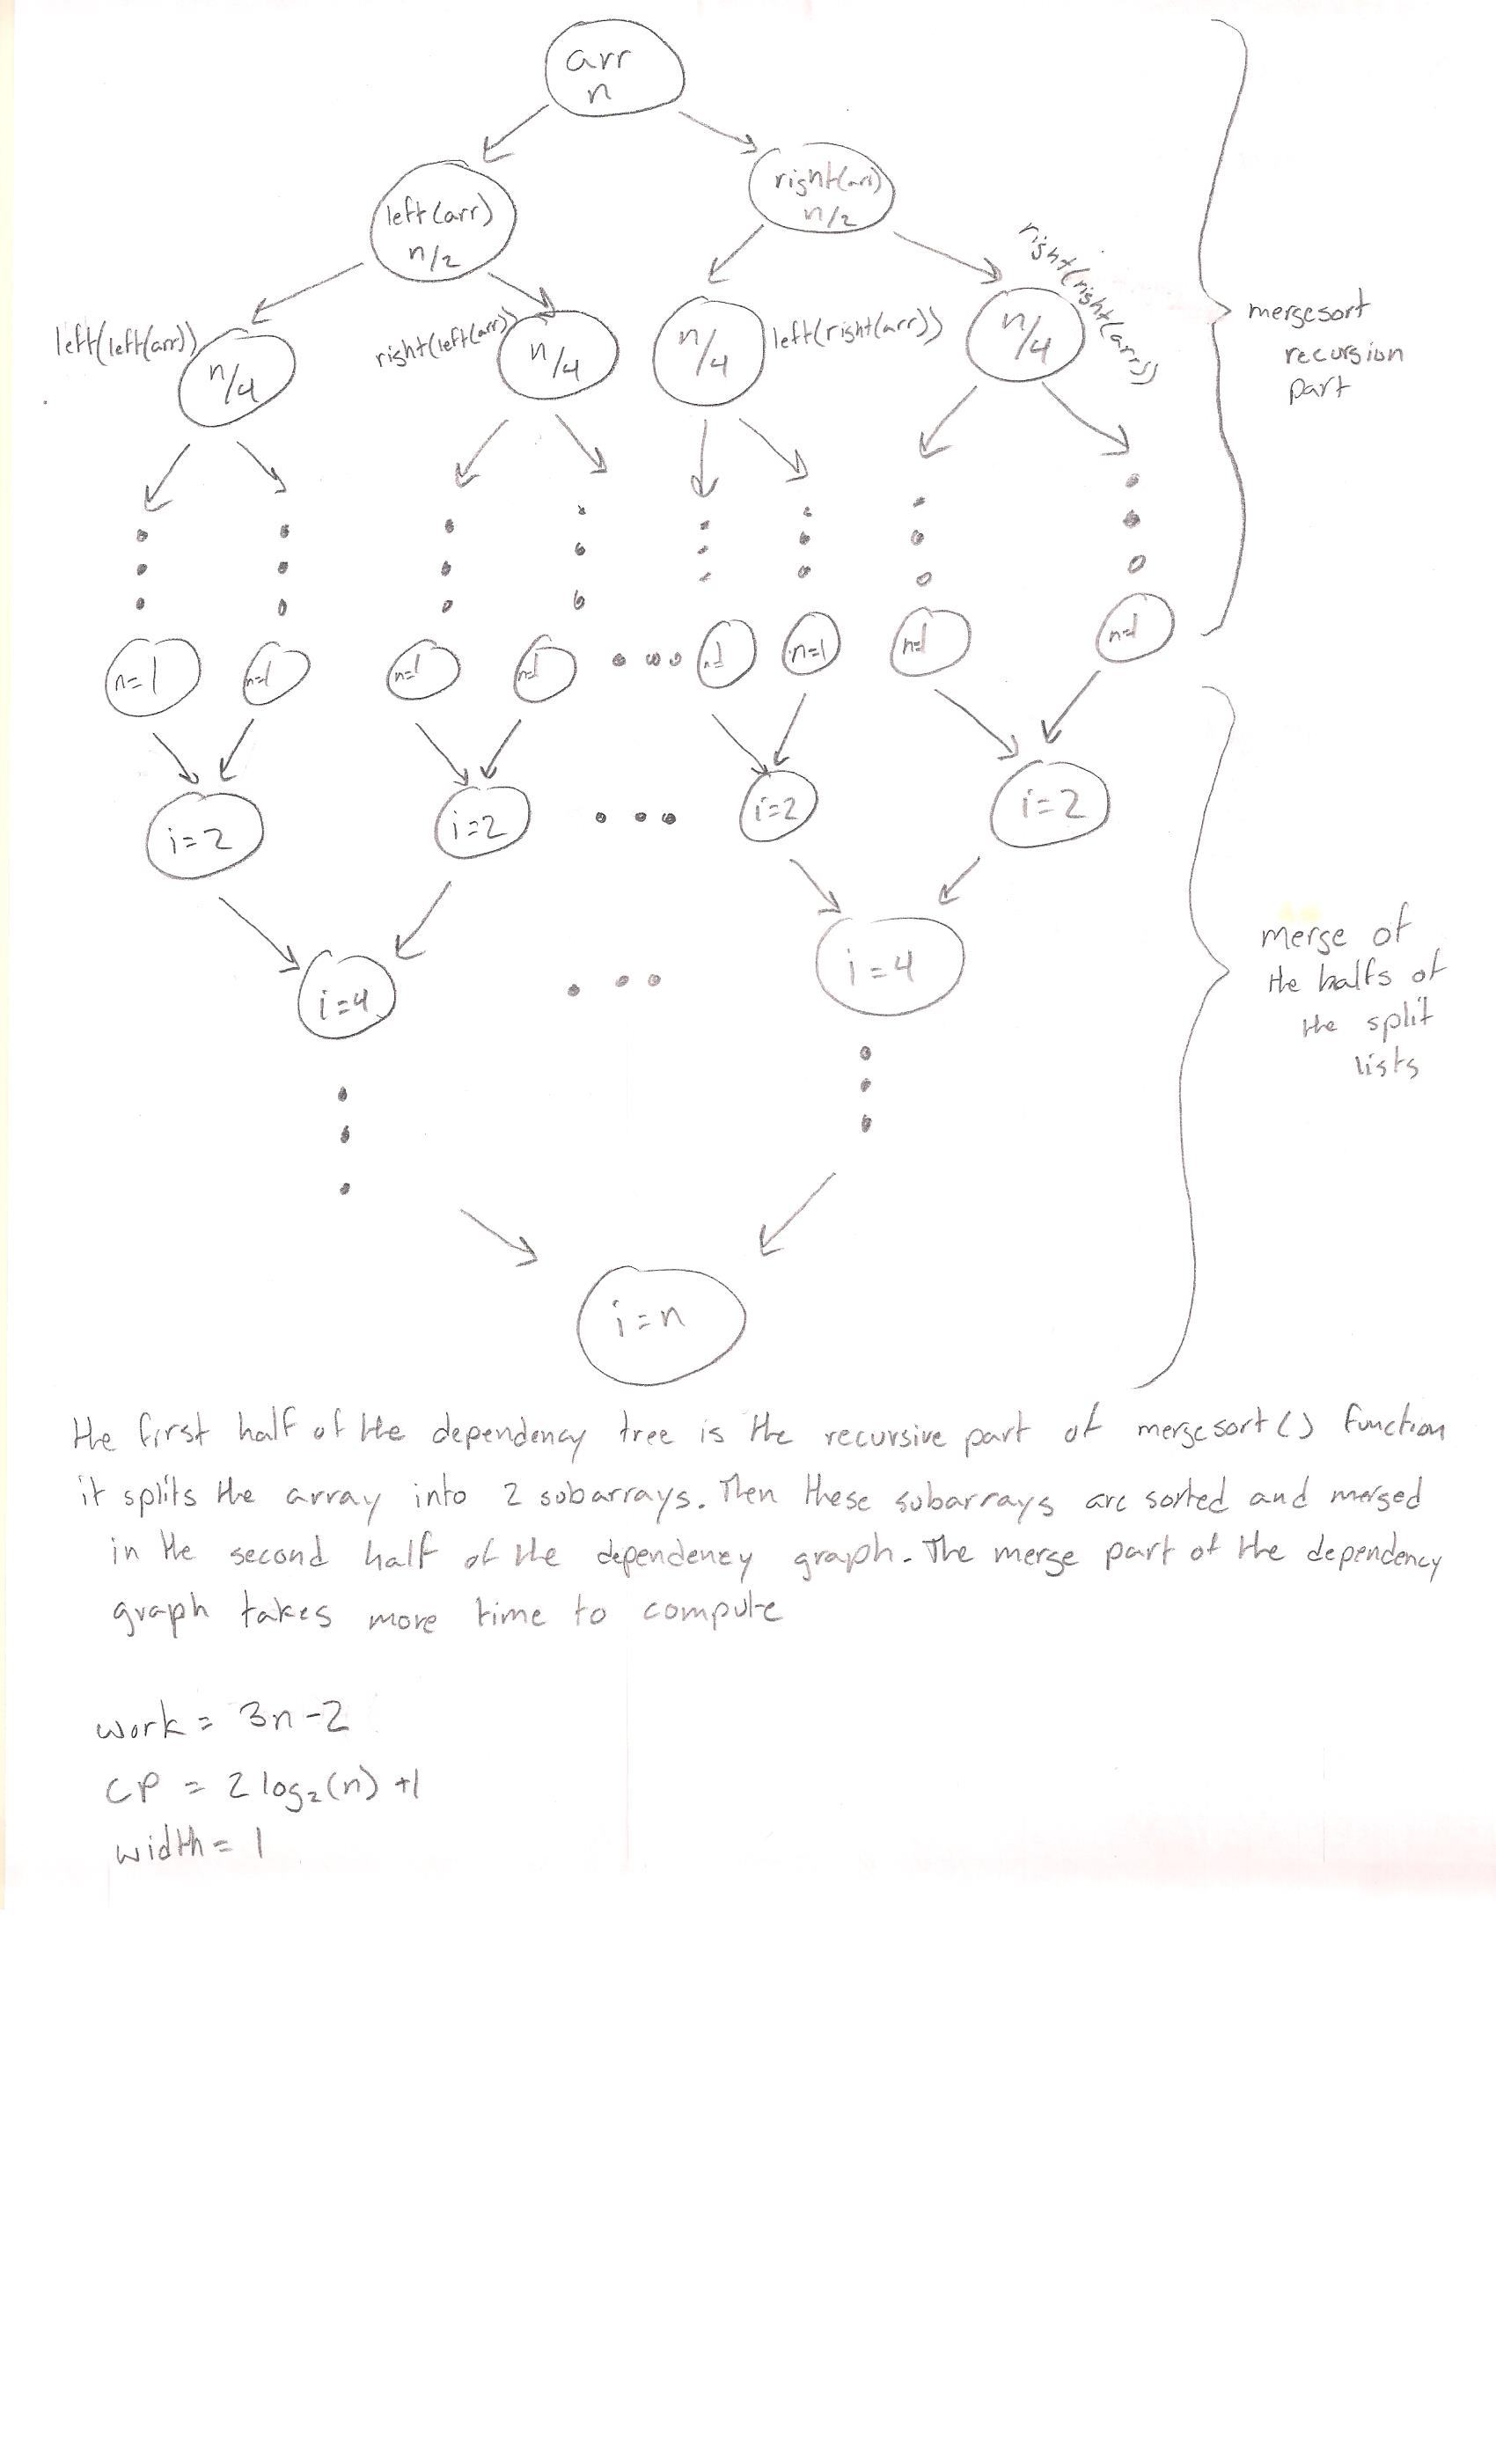 arr
n
left(arr)
n/2
right(arr)
n/2
left(left(arr))
n/4
right(left(arr))
n/4
n/4
left(right(arr))
n/4
right(right(arr))
mergesort
recursion
part
n=1
n=1
n=1
n=1
n=1
n=1
n=1
n=1
i=2
i=2
i=2
i=2
i=4
i=4
merge of
the halfs of
the split
lists
i=n
the first half of the dependency tree is the recursive part of mergesort() function
it splits the array into 2 subarrays. Then these subarrays are sorted and merged
in the second half of the dependency graph. The merge part of the dependency
graph takes more time to compute
work = 3n-2
CP = 2 log₂(n) +1
width = 1